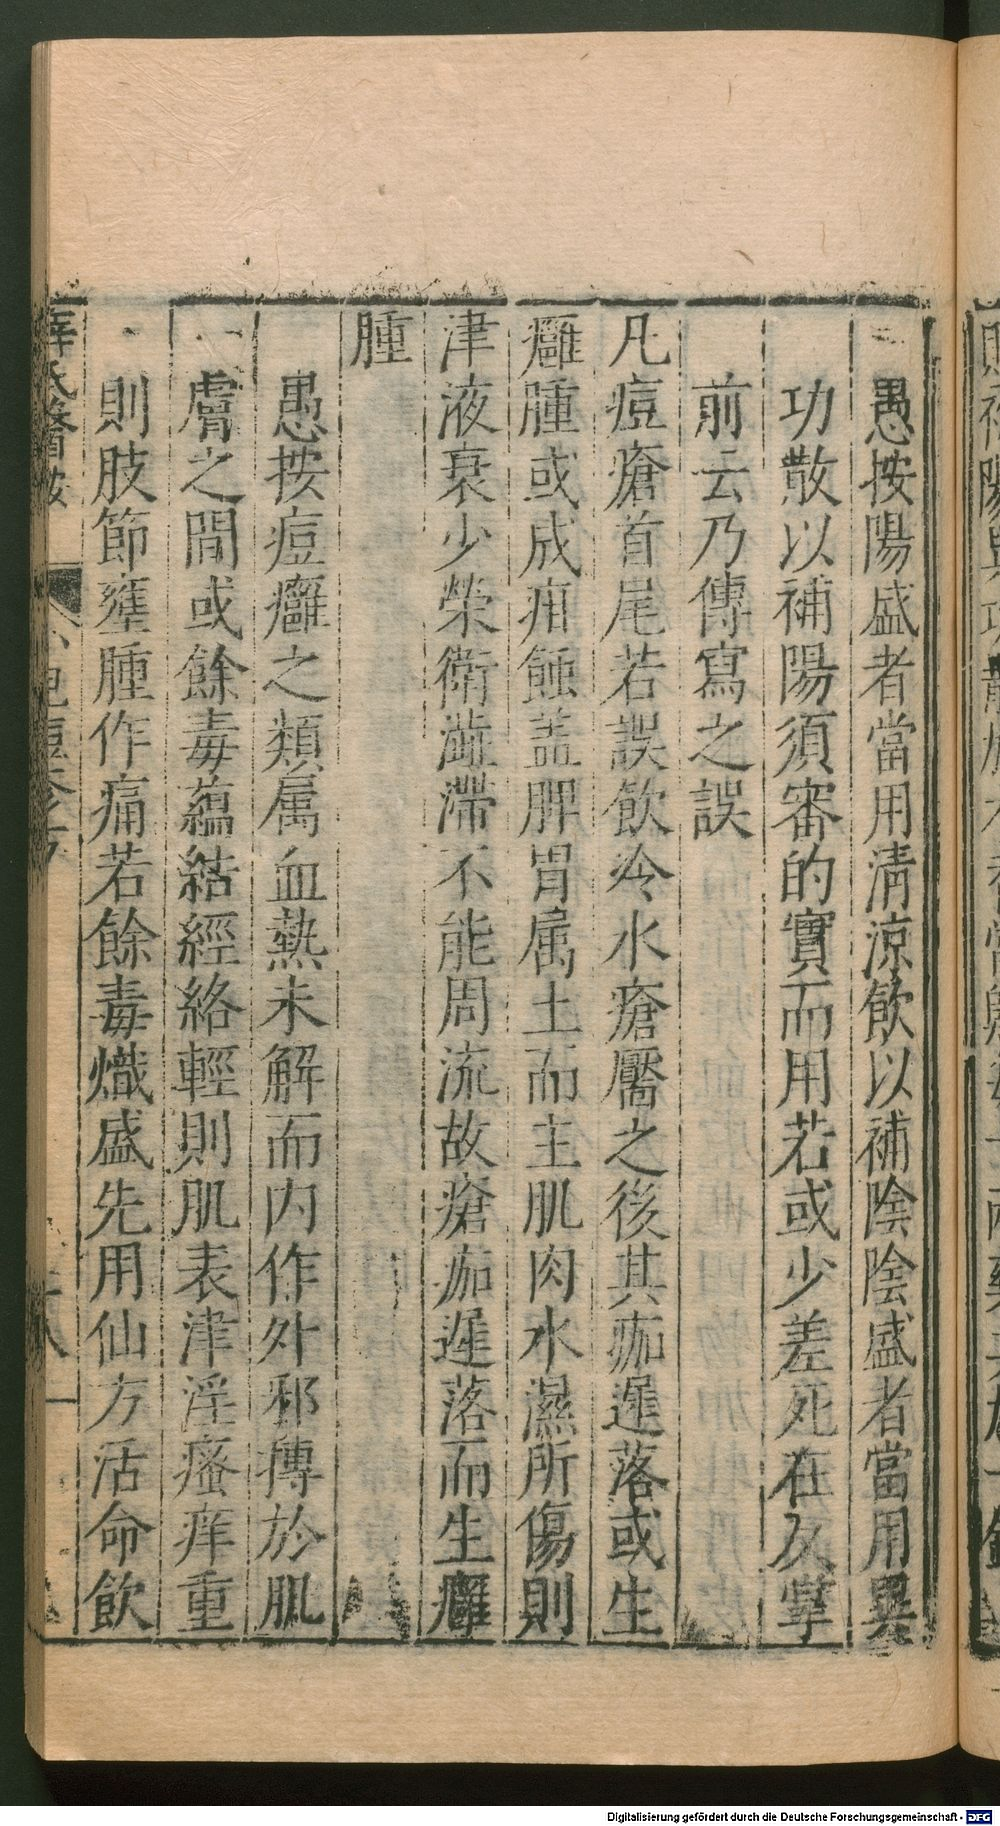 愚按陽盛者當用清涼飲以補陰陰盛者當用異
功散以補陽須審的實而用若或少差死在反掌
前云乃傳寫之誤
凡痘瘡首尾若誤飲冷水瘡靨之後其痂遲落或生
癰腫或成疳蝕盖脾胃属土而主肌肉水濕所傷則
津液衰少榮衛澁滯不能周流故瘡痂遲落而生癰
腫
愚按痘癰之類属血熱未解而内作外邪搏於肌
膚之間或餘毒蘊結經絡輕則肌表津淫瘙痒重
則肢節壅腫作痛若餘毒熾盛先用仙方活命飲
薛氏醫按
Digitalisierung gefördert durch die Deutsche Forschungsgemeinschaft - DFG